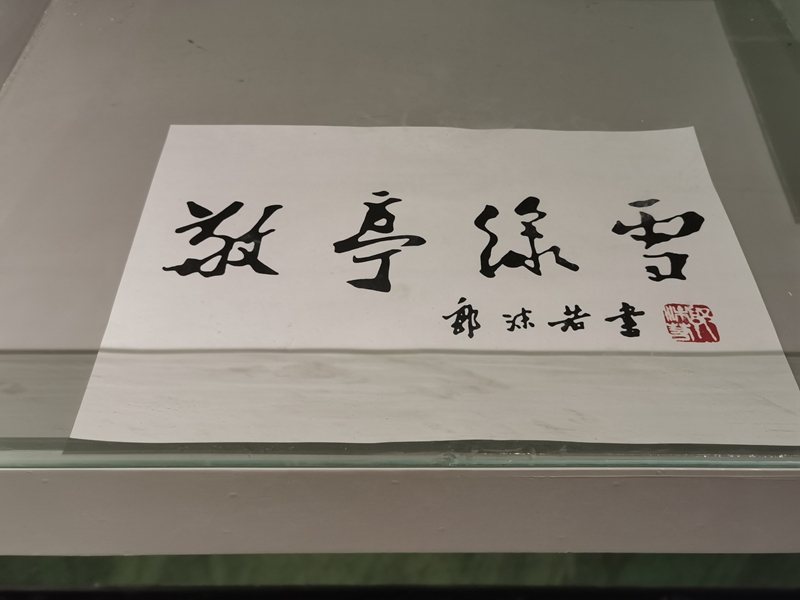 敬亭绿雪
郭沫若书